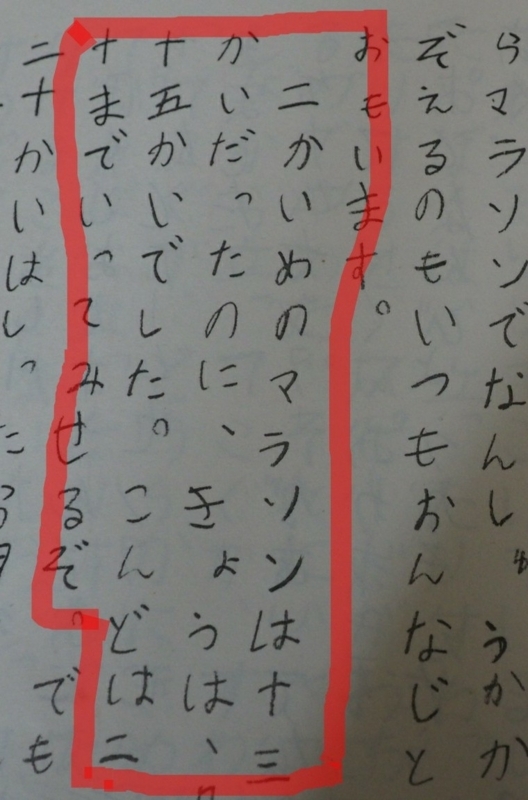 らマラソンでなんしゅうかか
ぞえるのもいつもおんなじと
おもいます。
二かいめのマラソンは十三
かいだったのに、きょうは、
十五かいでした。こんどは二
十までいってみせるぞ。でも
二十かいはしっ